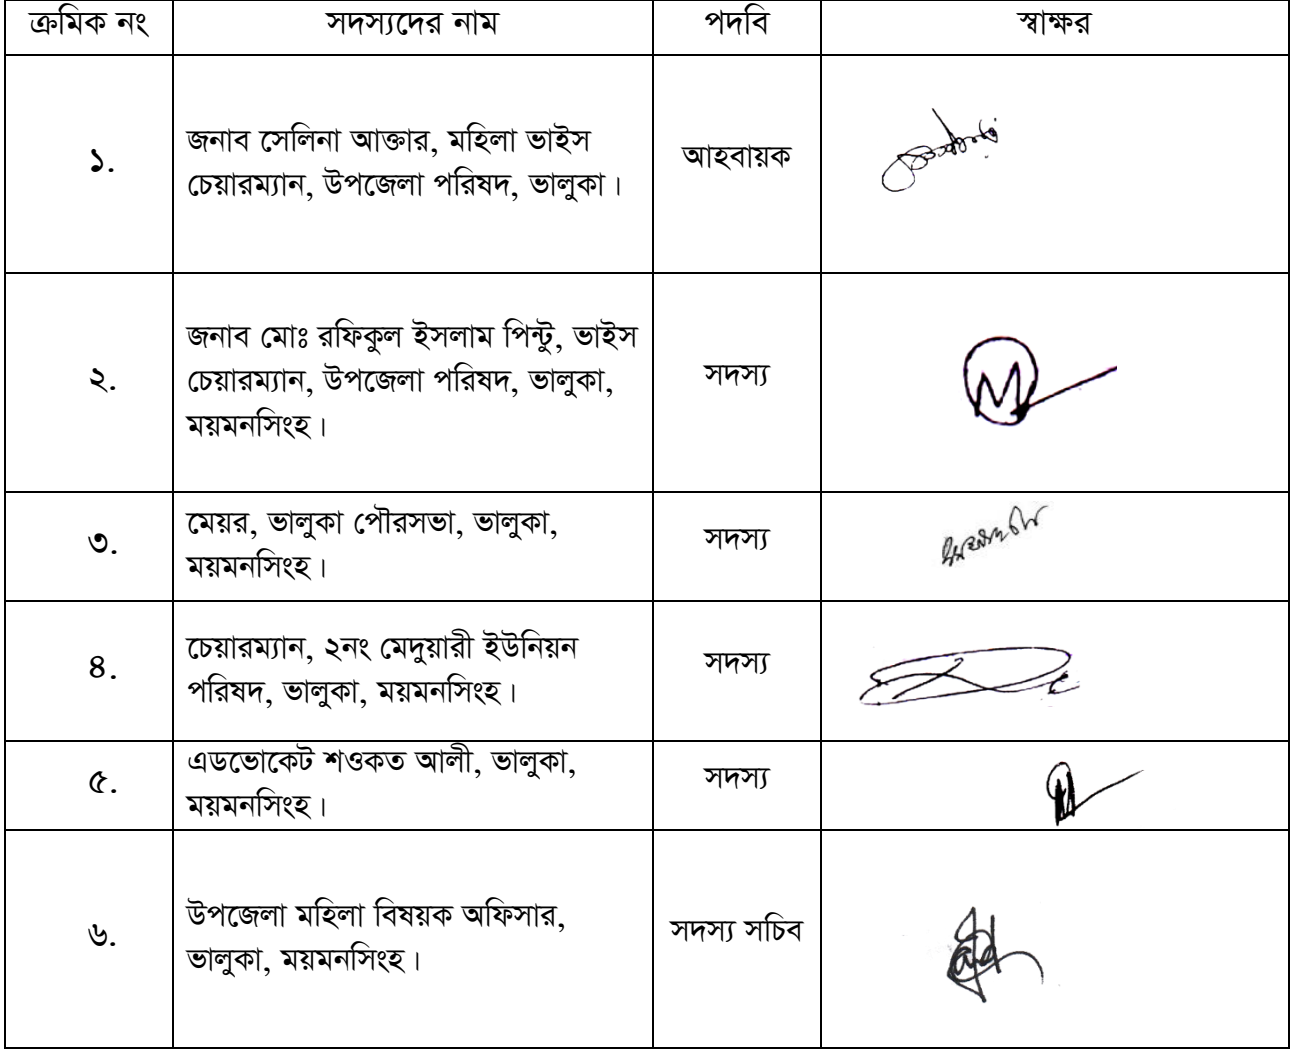 ক্রমিক নং সদস্যদের নাম পদবি স্বাক্ষর
১. জনাব সেলিনা আক্তার, মহিলা ভাইস
চেয়ারম্যান, উপজেলা পরিষদ, ভালুকা।
আহবায়ক
২. জনাব মোঃ রফিকুল ইসলাম পিন্টু, ভাইস
চেয়ারম্যান, উপজেলা পরিষদ, ভালুকা,
ময়মনসিংহ।
সদস্য
৩. মেয়র, ভালুকা পৌরসভা, ভালুকা,
ময়মনসিংহ।
সদস্য
৪. চেয়ারম্যান, ২নং মেদুয়ারী ইউনিয়ন
পরিষদ, ভালুকা, ময়মনসিংহ।
সদস্য
৫. এডভোকেট শওকত আলী, ভালুকা,
ময়মনসিংহ।
সদস্য
৬. উপজেলা মহিলা বিষয়ক অফিসার,
ভালুকা, ময়মনসিংহ।
সদস্য সচিব